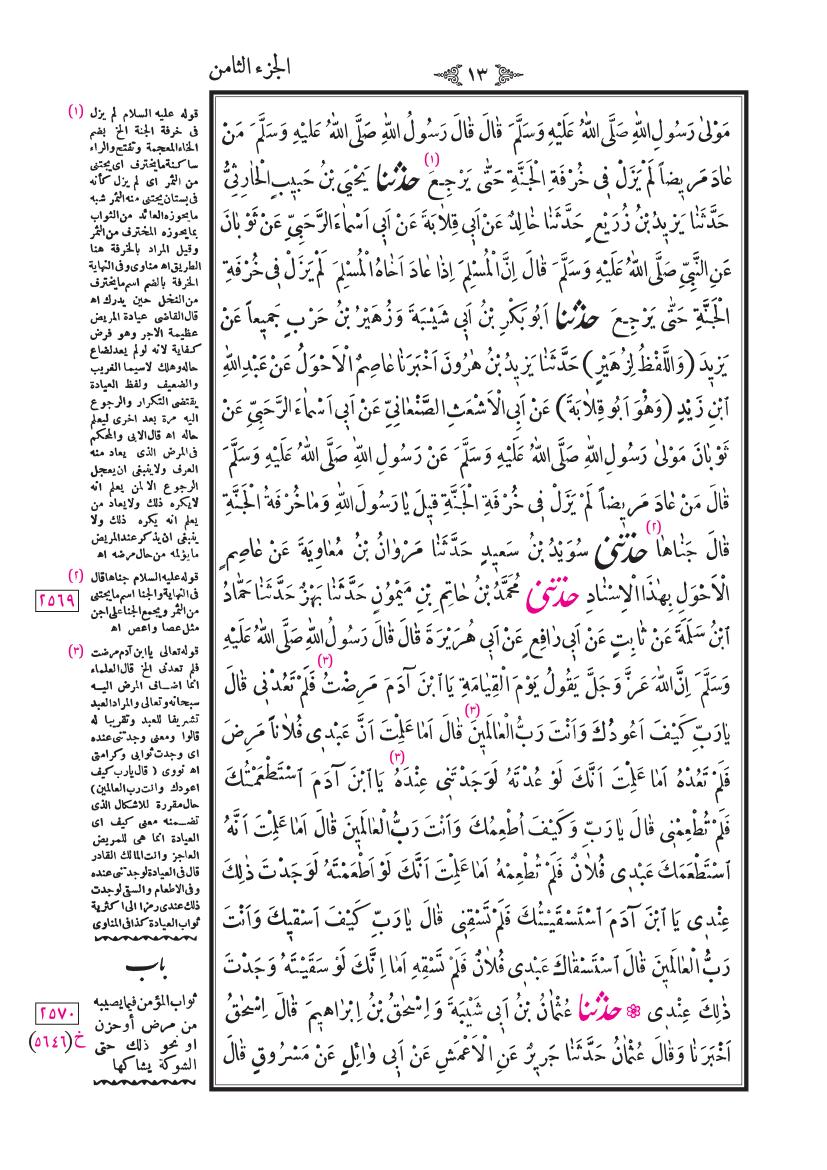 الجزء الثامن
١٣
مَوْلىٰ رَسُولِ اللهِ صَلَّى اللهُ عَلَيْهِ وَسَلَّمَ قالَ قالَ رَسُولُ اللهِ صَلَّى اللهُ عَلَيْهِ وَسَلَّمَ مَنْ
عادَ مَرِيضاً لَمْ يَزَلْ فِى خُرْفَةِ الْجَنَّةِ حَتّٰى يَرْجِعَ (١) حدثنا يَحْيَى بْنُ حَبِيبِ الْحارِثِىُّ
حَدَّثَنا يَزِيدُ بْنُ زُرَيْعٍ حَدَّثَنا خالِدٌ عَنْ اَبِى قِلابَةَ عَنْ اَبِى اَسْماءَ الرَّحَبِىِّ عَنْ ثَوْبانَ
عَنِ النَّبِىِّ صَلَّى اللهُ عَلَيْهِ وَسَلَّمَ قالَ اِنَّ الْمُسْلِمَ اِذا عادَ اَخاهُ الْمُسْلِمَ لَمْ يَزَلْ فِى خُرْفَةِ
الْجَنَّةِ حَتّٰى يَرْجِعَ حدثنا اَبُو بَكْرِ بْنُ اَبِى شَيْبَةَ وَزُهَيْرُ بْنُ حَرْبٍ جَمِيعاً عَنْ
يَزِيدَ (وَاللَّفْظُ لِزُهَيْرٍ) حَدَّثَنا يَزِيدُ بْنُ هٰرُونَ اَخْبَرَنا عاصِمٌ الْاَحْوَلُ عَنْ عَبْدِ اللهِ
ابْنِ زَيْدٍ (وَهُوَ اَبُو قِلابَةَ) عَنْ اَبِى الْاَشْعَثِ الصَّنْعانِىِّ عَنْ اَبِى اَسْماءَ الرَّحَبِىِّ عَنْ
ثَوْبانَ مَوْلىٰ رَسُولِ اللهِ صَلَّى اللهُ عَلَيْهِ وَسَلَّمَ عَنْ رَسُولِ اللهِ صَلَّى اللهُ عَلَيْهِ وَسَلَّمَ
قالَ مَنْ عادَ مَرِيضاً لَمْ يَزَلْ فِى خُرْفَةِ الْجَنَّةِ قِيلَ يا رَسُولَ اللهِ وَما خُرْفَةُ الْجَنَّةِ
قالَ جَناها (٢) حدثنى سُوَيْدُ بْنُ سَعِيدٍ حَدَّثَنا مَرْوانُ بْنُ مُعاوِيَةَ عَنْ عاصِمٍ
الْاَحْوَلِ بِهٰذَا الْاِسْنادِ حدثنى مُحَمَّدُ بْنُ حاتِمِ بْنِ مَيْمُونٍ حَدَّثَنا بَهْزٌ حَدَّثَنا حَمّادُ
ابْنُ سَلَمَةَ عَنْ ثابِتٍ عَنْ اَبِى رافِعٍ عَنْ اَبِى هُرَيْرَةَ قالَ قالَ رَسُولُ اللهِ صَلَّى اللهُ عَلَيْهِ
وَسَلَّمَ اِنَّ اللهَ عَزَّ وَجَلَّ يَقُولُ يَوْمَ الْقِيامَةِ يَا ابْنَ آدَمَ مَرِضْتُ (٣) فَلَمْ تَعُدْنِى قالَ
يارَبِّ كَيْفَ اَعُودُكَ وَاَنْتَ رَبُّ الْعالَمِينَ (٣) قالَ اَما عَلِمْتَ اَنَّ عَبْدِى فُلاناً مَرِضَ
فَلَمْ تَعُدْهُ اَما عَلِمْتَ اَنَّكَ لَوْ عُدْتَهُ لَوَجَدْتَنِى عِنْدَهُ (٣) يَا ابْنَ آدَمَ اسْتَطْعَمْتُكَ
فَلَمْ تُطْعِمْنِى قالَ يارَبِّ وَكَيْفَ اُطْعِمُكَ وَاَنْتَ رَبُّ الْعالَمِينَ قالَ اَما عَلِمْتَ اَنَّهُ
اسْتَطْعَمَكَ عَبْدِى فُلانٌ فَلَمْ تُطْعِمْهُ اَما عَلِمْتَ اَنَّكَ لَوْ اَطْعَمْتَهُ لَوَجَدْتَ ذٰلِكَ
عِنْدِى يَا ابْنَ آدَمَ اسْتَسْقَيْتُكَ فَلَمْ تَسْقِنِى قالَ يارَبِّ كَيْفَ اَسْقِيكَ وَاَنْتَ
رَبُّ الْعالَمِينَ قالَ اسْتَسْقاكَ عَبْدِى فُلانٌ فَلَمْ تَسْقِهِ اَما اِنَّكَ لَوْ سَقَيْتَهُ وَجَدْتَ
ذٰلِكَ عِنْدِى ۞ حدثنا عُثْمانُ بْنُ اَبِى شَيْبَةَ وَاِسْحٰقُ بْنُ اِبْراهِيمَ قالَ اِسْحٰقُ
اَخْبَرَنا وَقالَ عُثْمانُ حَدَّثَنا جَرِيرٌ عَنِ الْاَعْمَشِ عَنْ اَبِى وائِلٍ عَنْ مَسْرُوقٍ قالَ
(١) قوله عليه السلام لم يزل
فى خرفة الجنة الخ بضم
الخاء المعجمة وتفتح والراء
ساكنة ما يخترف اى يجتنى
من الثمر اى لم يزل كأنه
فى بستان يجتنى منه الثمر شبه
ما يحوزه العائد من الثواب
بما يحوزه المخترف من الثمر
وقيل المراد بالخرفة هنا
الطريق اه مناوى وفى النهاية
الخرفة بالضم اسم ما يخترف
من النخل حين يدرك اه
قال القاضى عيادة المريض
عظيمة الاجر وهو فرض
كفاية لانه لو لم يعد لضاع
حاله وهلك لاسيما الغريب
والضعيف ولفظ العيادة
يقتضى التكرار والرجوع
اليه مرة بعد اخرى ليعلم
حاله اه قال الابى والمحكم
فى المرض الذى يعاد منه
العرف ولا ينبغى ان يعجل
الرجوع الا لمن يعلم انه
لايكره ذلك ولا يعاد من
يعلم انه يكره ذلك ولا
ينبغى ان يذكر عند المريض
ما يؤلمه من حال مرضه اه
(٢) قوله عليه السلام جناها قال
فى النهاية والجنا اسم ما يجتنى
من الثمر ويجمع الجنا على اجن
مثل عصا واعص اه
٢٥٦٩
(٣) قوله تعالى يا ابن آدم مرضت
فلم تعدنى الخ قال العلماء
انما اضاف المرض اليه
سبحانه وتعالى والمراد العبد
تشريفا للعبد وتقريبا له
قالوا ومعنى وجدتنى عنده
اى وجدت ثوابى وكرامتى
اه نووى (قال يارب كيف
اعودك وانت رب العالمين)
حال مقررة للاشكال الذى
تضمنه معنى كيف اى
العيادة انما هى للمريض
العاجز وانت المالك القادر
قال فى العيادة لوجدتنى عنده
وفى الاطعام والسقى لوجدت
ذلك عندى رمزا الى اكثرية
ثواب العيادة كذا فى المناوى
باب
ثواب المؤمن فيما يصيبه
من مرض أوحزن
او نحو ذلك حتى
الشوكة يشاكها
٢٥٧٠
خ (٥٦٤٦)